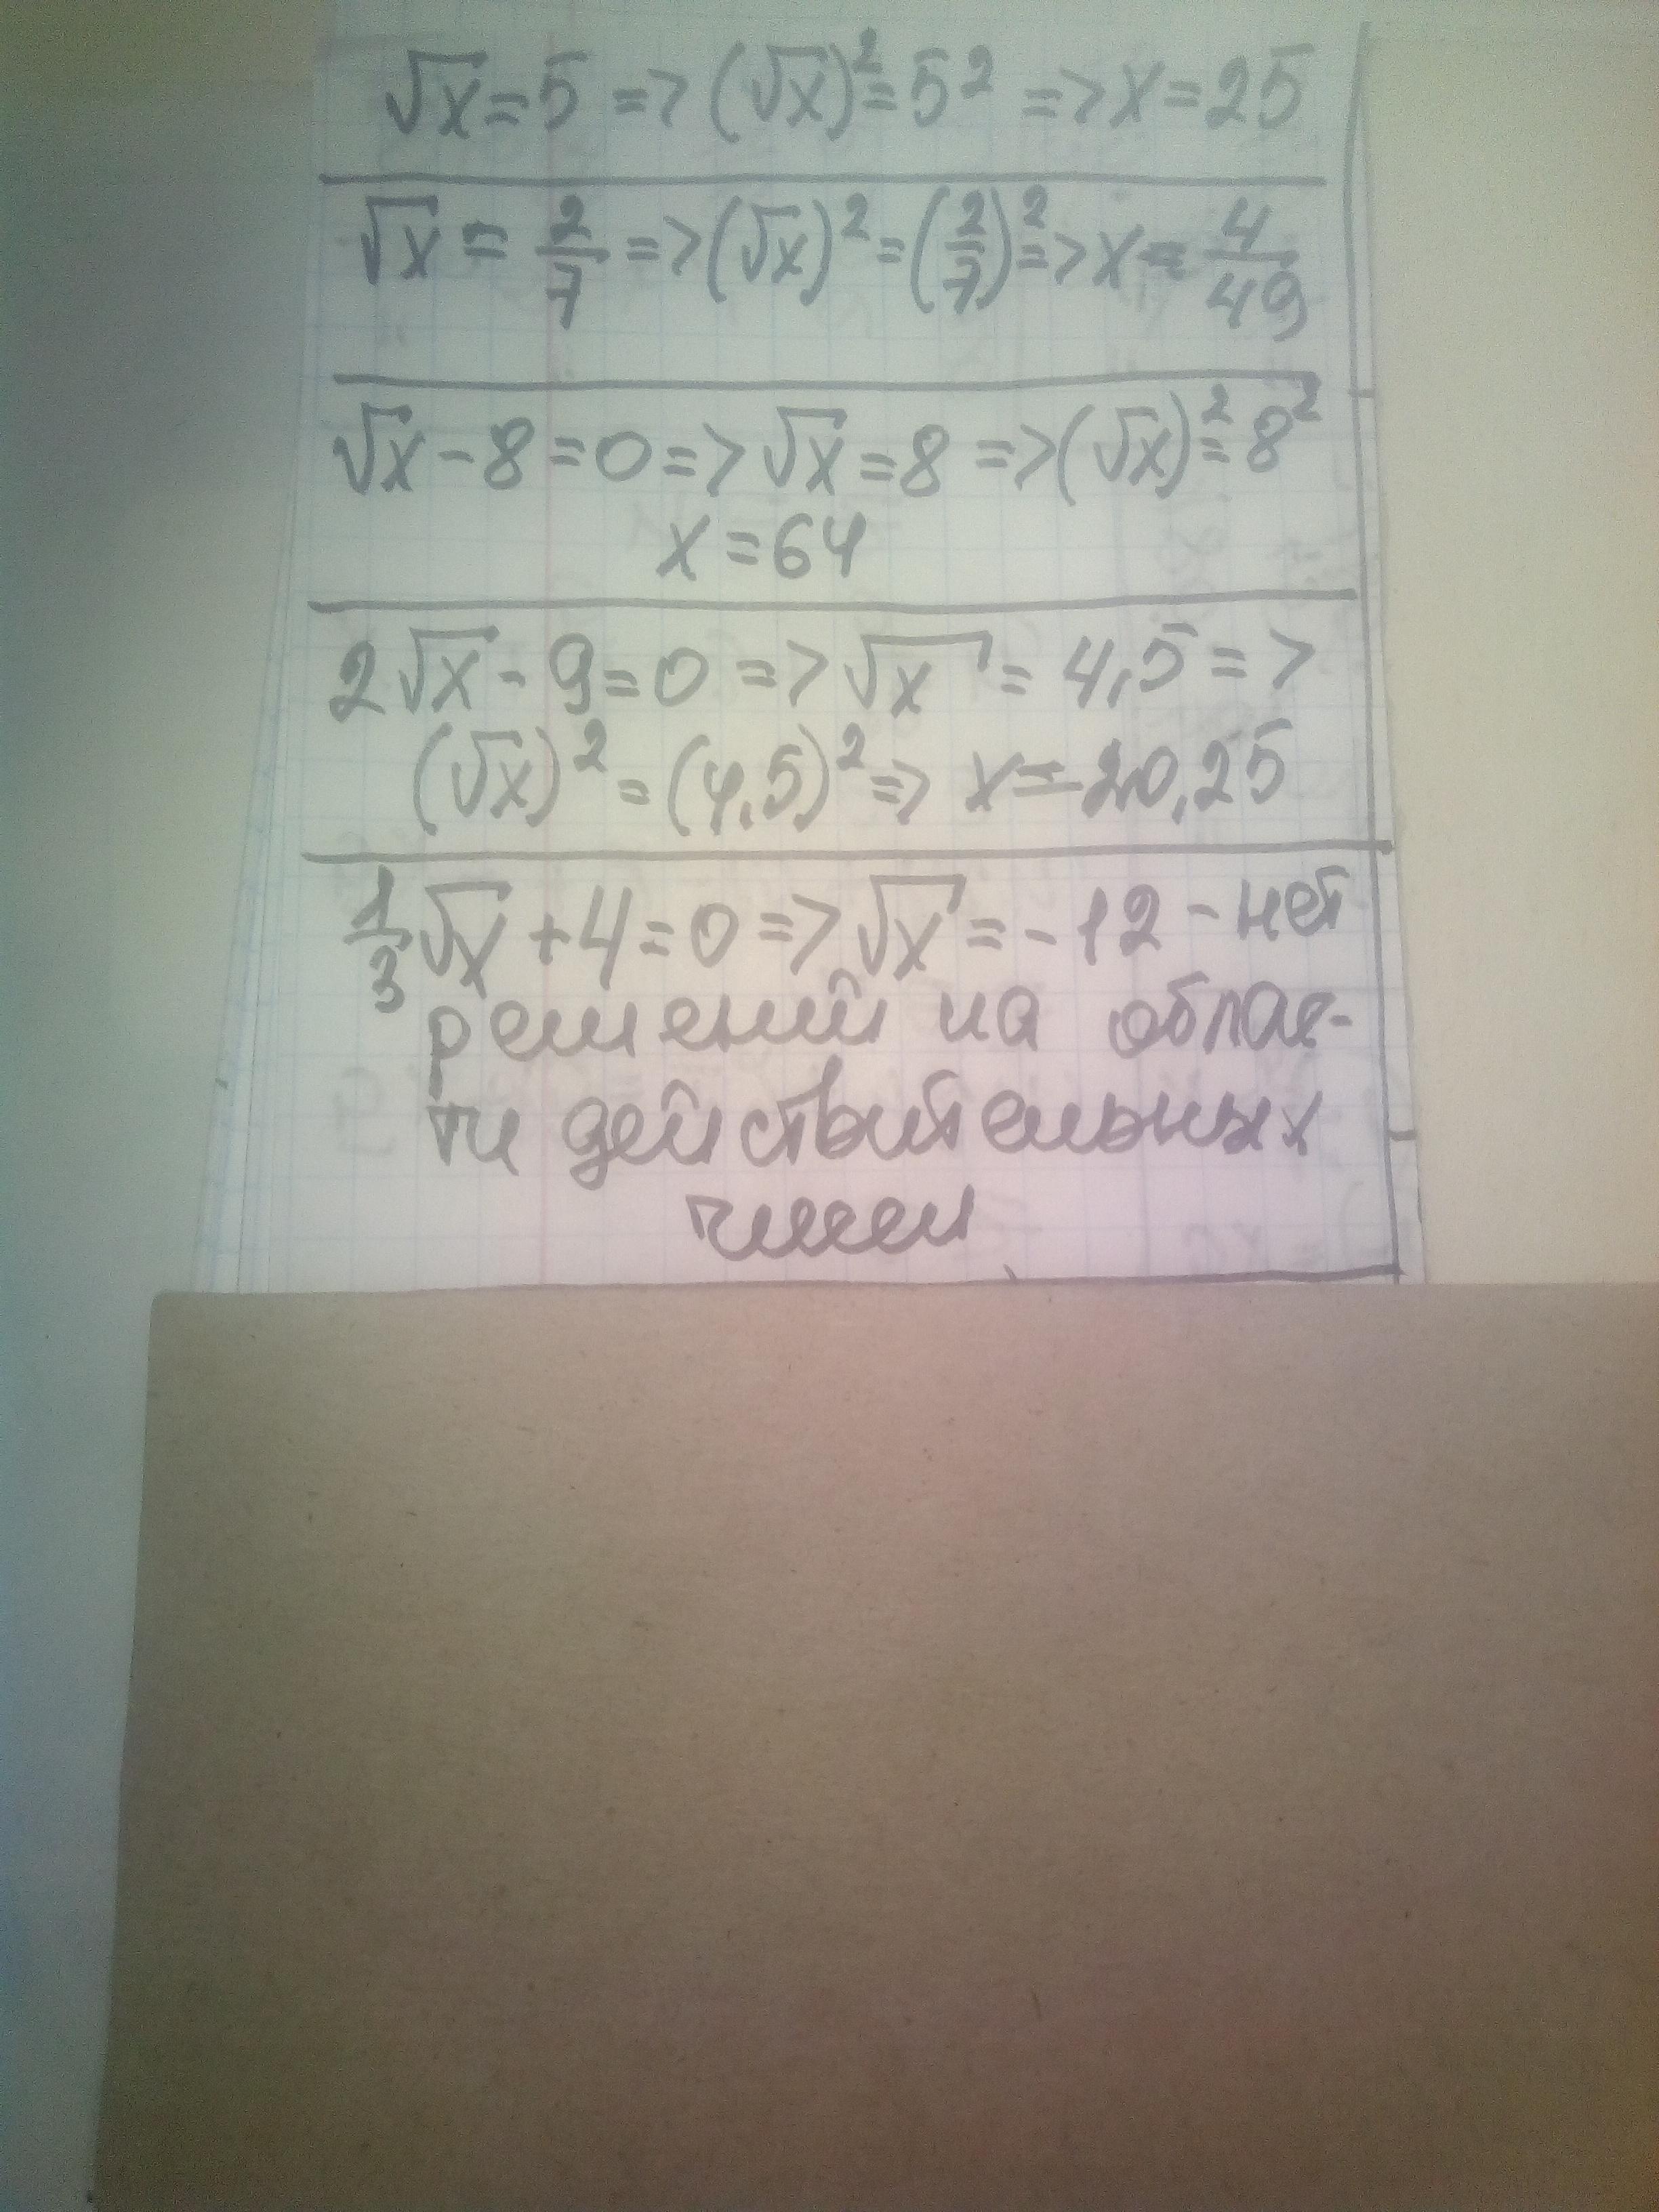 √x = 5 => (√x)² = 5² => x = 25
√x = 2/7 => (√x)² = (2/7)² => x = 4/49
√x - 8 = 0 => √x = 8 => (√x)² = 8²
x = 64
2√x - 9 = 0 => √x = 4,5 =>
(√x)² = (4,5)² => x = 20,25
1/3 √x + 4 = 0 => √x = -12 - нет
решений на облас-
ти действительных
чисел